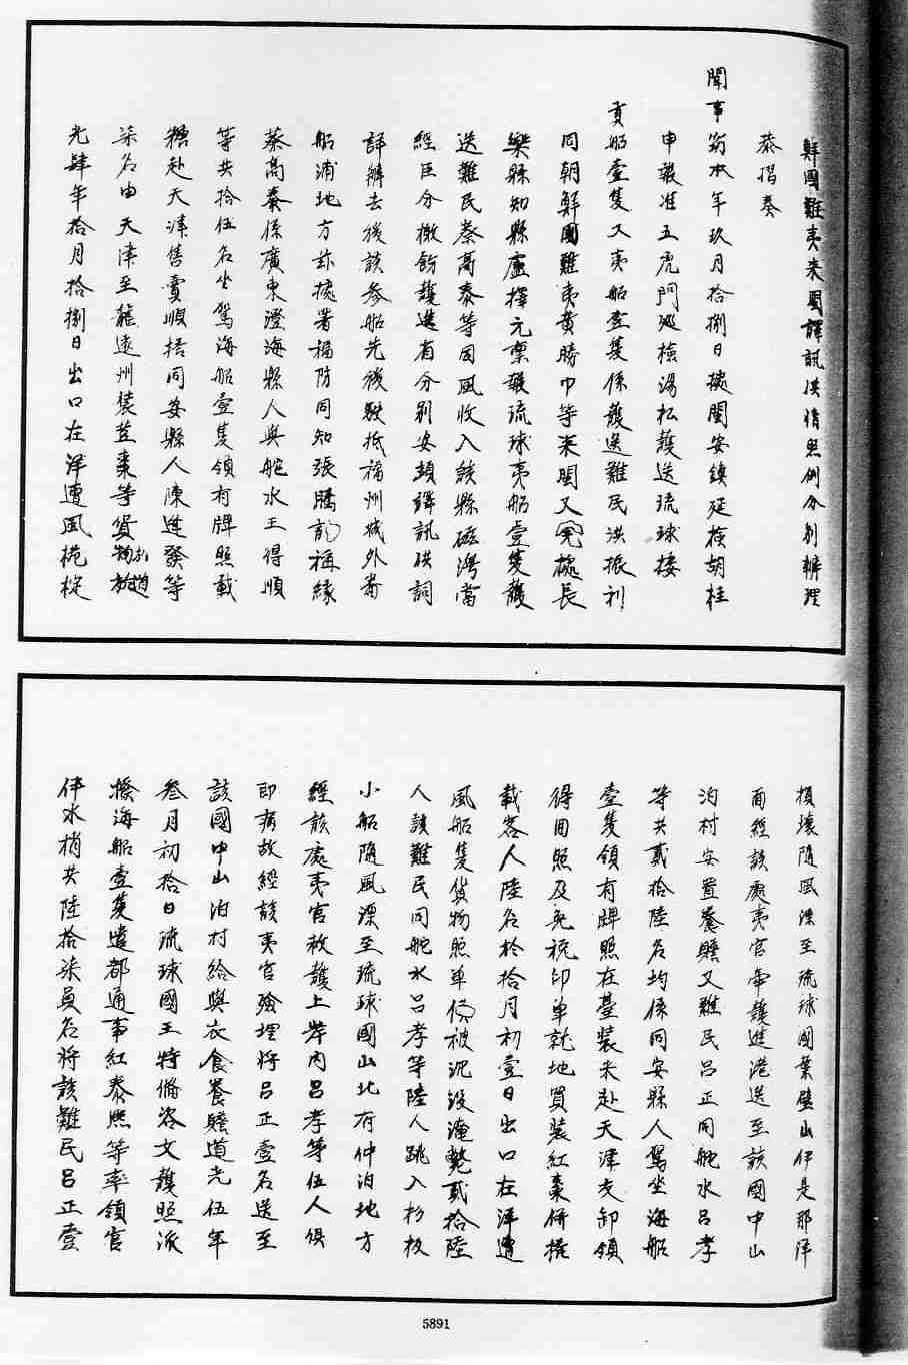 鮮國難夷來閩譯訊供情照例分別辦理
恭摺奏
聞事竊本年玖月拾捌日據閩安鎮延檢胡桂
申報准五虎門巡檢湯松護送琉球接
貢船壹隻又夷船壹隻係護送難民洪振利
同朝鮮國難夷黃勝巾等來閩又據長
樂縣知縣盧擇元稟報琉球夷船壹隻護
送難民蔡高泰等因風收入該縣磁灣當
經臣分檄飭護進省分別安頓譯訊供詞
詳辦去後該叁船先後駛抵福州城外番
船浦地方玆據署福防同知張騰訊稱緣
蔡高泰係廣東澄海縣人與舵水王得順
等共拾伍名坐駕海船壹隻領有牌照載
糖赴天津售賣順搭同安縣人陳進發等
柒名由天津至龍遠州裝荳棗等貨物於道
光肆年拾月拾捌日出口在洋遭風桅椗
損壞隨風漂至琉球國葉壁山伊是那洋
面經該處夷官牽護進港送至該國中山
泊村安置養贍又難民呂正同舵水呂孝
等共貳拾陸名均係同安縣人駕坐海船
壹隻領有牌照在臺裝米赴天津支卸領
得回照及免稅印單就地買裝紅棗併搭
載客人陸名於拾月初壹日出口在洋遭
風船隻貨物照單俱被沉沒淹斃貳拾陸
人該難民同舵水呂孝等陸人跳入杉板
小船隨風漂至琉球國山北府仲泊地方
經該處夷官救護上岸內呂孝等伍人俱
即病故經該夷官殮埋將呂正壹名送至
該國中山泊村給與衣食養贍道光伍年
叁月初拾日琉球國王特備咨文護照派
撥海船壹隻遣都通事紅泰熙等率領官
伴水梢共陸拾柒員名將該難民呂正壹
5891